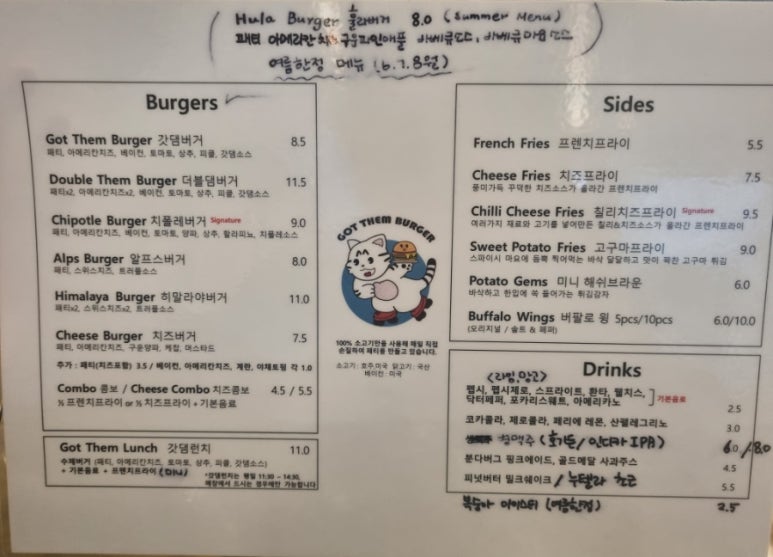 Hula Burger 훌라버거 8.0 (Summer Menu)
패티 아메리칸치즈 구운파인애플 바베큐소스, 바베큐마요소스
여름한정 메뉴 (6.7.8월)
Burgers
Got Them Burger 갓댐버거 8.5
패티, 아메리칸치즈, 베이컨, 토마토, 상추, 피클, 갓댐소스
Double Them Burger 더블댐버거 11.5
패티x2, 아메리칸치즈x2, 베이컨, 토마토, 상추, 피클, 갓댐소스
Chipotle Burger 치폴레버거 Signature 9.0
패티, 아메리칸치즈, 베이컨, 토마토, 양파, 상추, 할라피뇨, 치폴레소스
Alps Burger 알프스버거 8.0
패티, 스위스치즈, 트러플소스
Himalaya Burger 히말라야버거 11.0
패티x2, 스위스치즈x2, 트러플소스
Cheese Burger 치즈버거 7.5
패티, 아메리칸치즈, 구운양파, 케찹, 머스타드
추가 : 패티(치즈포함) 3.5 / 베이컨, 아메리칸치즈, 계란, 야채토핑 각 1.0
Combo 콤보 / Cheese Combo 치즈콤보 4.5 / 5.5
½ 프렌치프라이 or ½ 치즈프라이 + 기본음료
Got Them Lunch 갓댐런치 11.0
수제버거 (패티, 아메리칸치즈, 토마토, 상추, 피클, 갓댐소스)
+ 기본음료 + 프렌치프라이 (미니)
*갓댐런치는 평일 11:30 ~ 14:30,
매장에서 드시는 경우에만 가능합니다
GOT THEM BURGER
100% 소고기만을 사용해 매일 직접
손질하여 패티를 만들고 있습니다.
소고기 : 호주,미국 닭고기 : 국산
베이컨 : 미국
Sides
French Fries 프렌치프라이 5.5
Cheese Fries 치즈프라이 7.5
풍미가득 꾸덕한 치즈소스가 올라간 프렌치프라이
Chilli Cheese Fries 칠리치즈프라이 Signature 9.5
여러가지 재료와 고기를 넣어만든 칠리&치즈소스가 올라간 프렌치프라이
Sweet Potato Fries 고구마프라이 9.0
스파이시 마요에 듬뿍 찍어먹는 바삭 달달하고 맛이 꽉찬 고구마 튀김
Potato Gems 미니 해쉬브라운 6.0
바삭하고 한입에 쏙 들어가는 튀김감자
Buffalo Wings 버팔로 윙 5pcs/10pcs 6.0/10.0
(오리지널 / 솔트 & 페퍼)
Drinks
(라임,망고)
펩시, 펩시제로, 스프라이트, 환타, 웰치스,
닥터페퍼, 포카리스웨트, 아메리카노 기본음료 2.5
코카콜라, 제로콜라, 페리에 레몬, 산펠레그리노 3.0
생맥주 (호가든/인디카 IPA) 6.0 / 8.0
분다버그 핑크에이드, 골드메달 사과주스 4.5
피넛버터 밀크쉐이크 / 누텔라 초코 5.5
복숭아 아이스티 (여름한정) 2.5